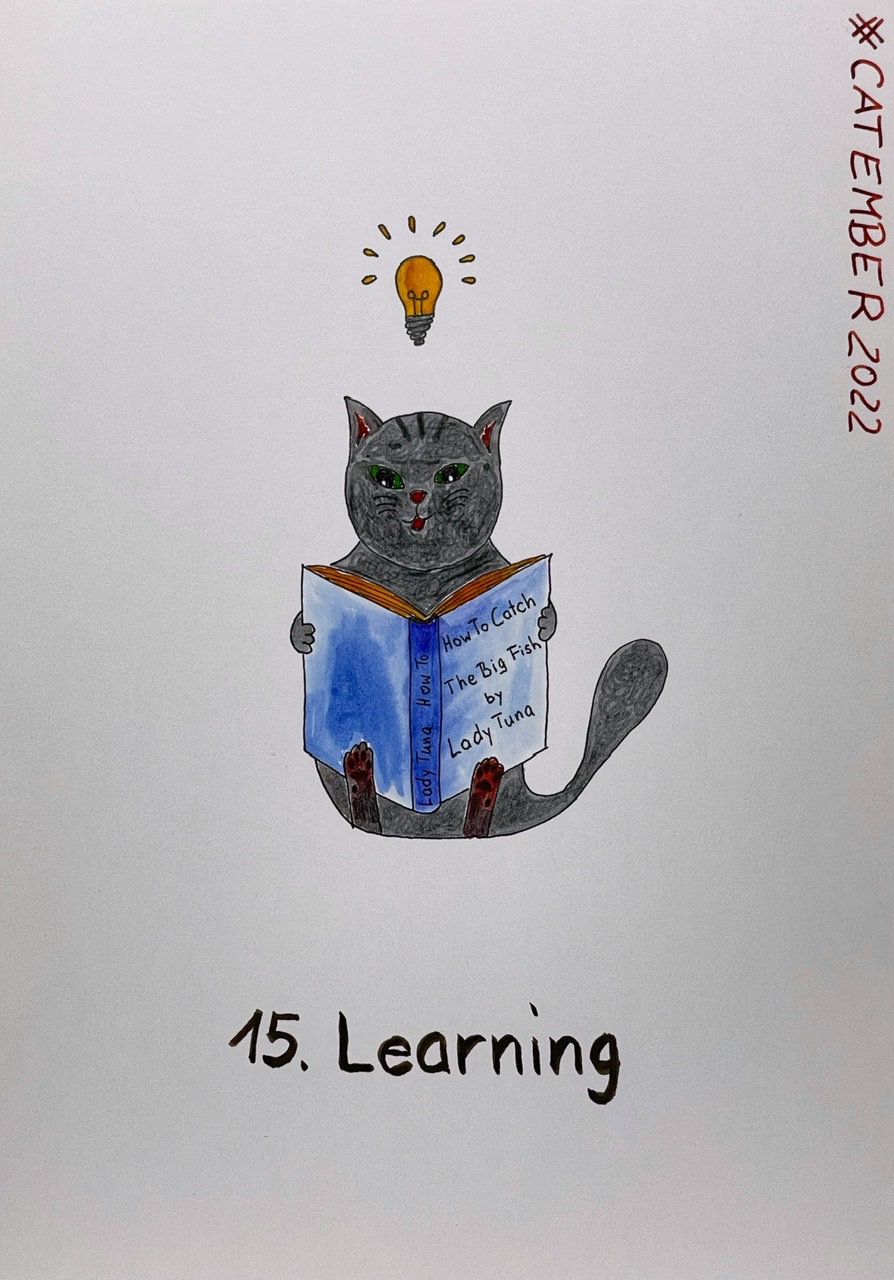 #CATEMBER 2022
How To Catch
The Big Fish
by
Lady Tuna
Lady Tuna How To
15. Learning